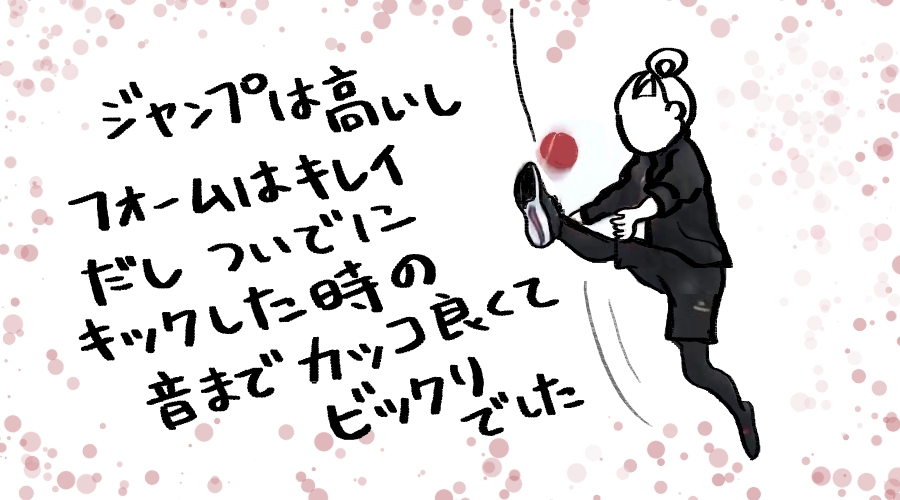 ジャンプは高いし
フォームはキレイ
だし ついでに
キックした時の
音まで カッコ良くて
ビックリ
でした